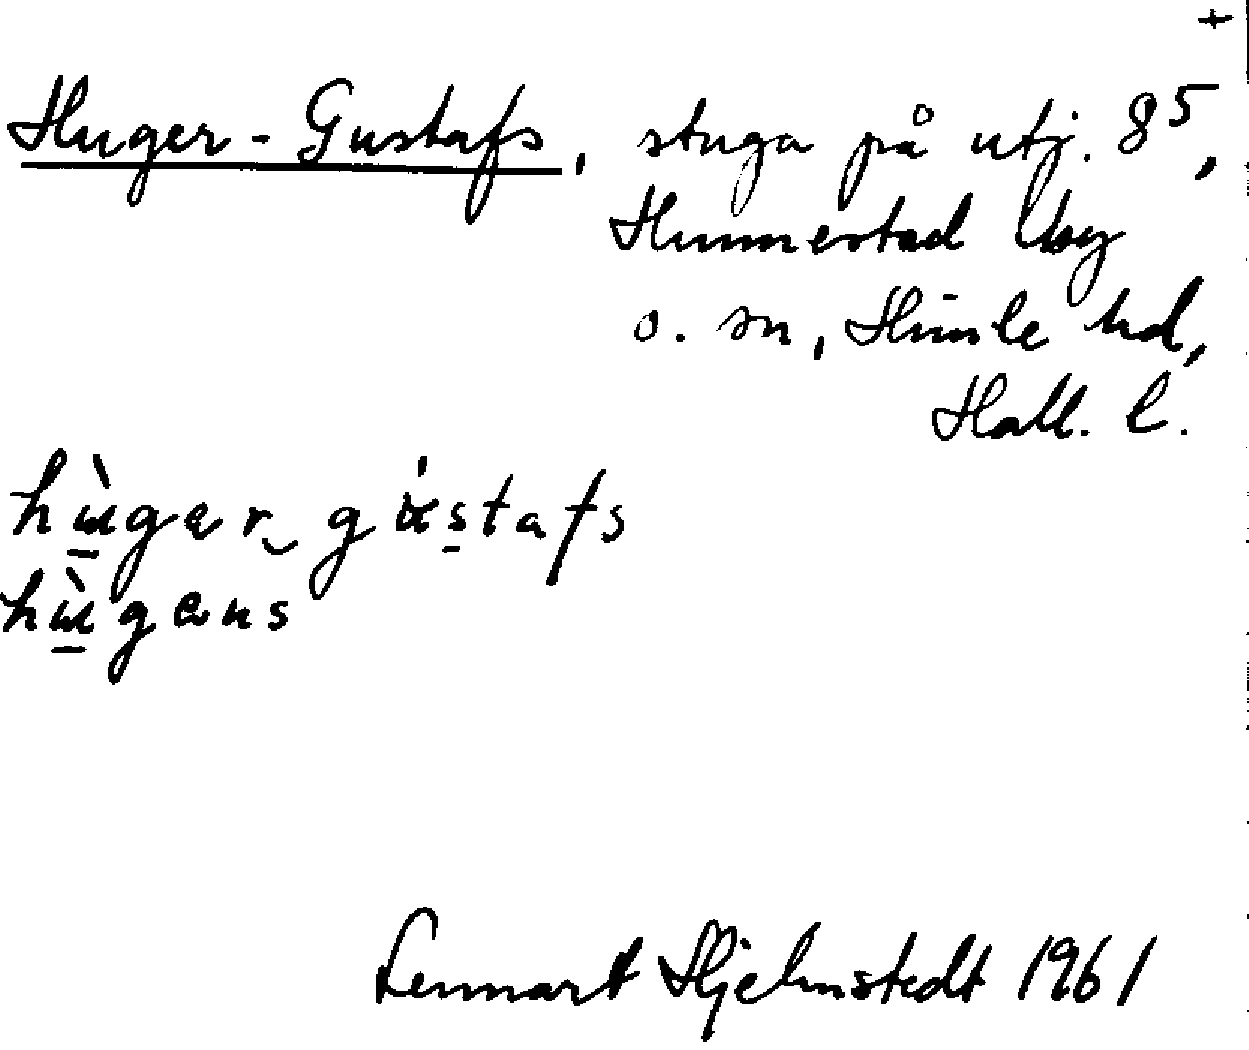 +
Huger-Gustafs, stuga på utj. 8⁵,
Hunnestad by
o. sn, Himle hd,
Hall. l.
Lennart Hjelmstedt 1961